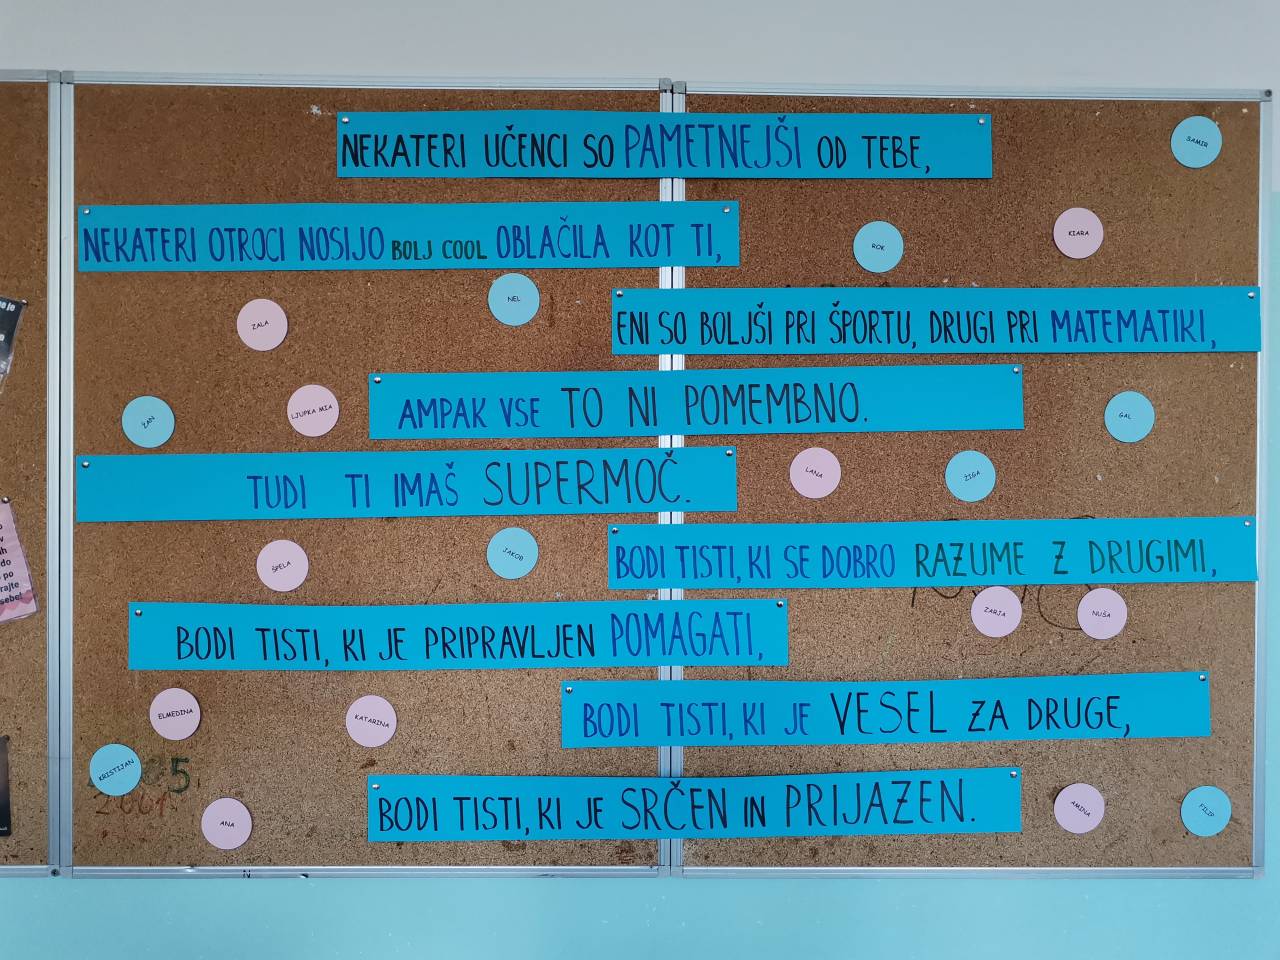 NEKATERI UČENCI SO PAMETNEJŠI OD TEBE,
SAMIR
NEKATERI OTROCI NOSIJO BOLJ COOL OBLAČILA KOT TI,
ROK
KIARA
ZALA
NEL
ENI SO BOLJŠI PRI ŠPORTU, DRUGI PRI MATEMATIKI,
ŽAN
LJUPKA MIA
AMPAK VSE TO NI POMEMBNO.
GAL
TUDI TI IMAŠ SUPERMOČ.
LANA
ŽIGA
ŠPELA
JAKOB
BODI TISTI, KI SE DOBRO RAZUME Z DRUGIMI,
ZARJA
NUŠA
BODI TISTI, KI JE PRIPRAVLJEN POMAGATI,
ELMEDINA
KATARINA
BODI TISTI, KI JE VESEL ZA DRUGE,
KRISTIJAN
ANA
BODI TISTI, KI JE SRČEN IN PRIJAZEN.
AMINA
FILIP